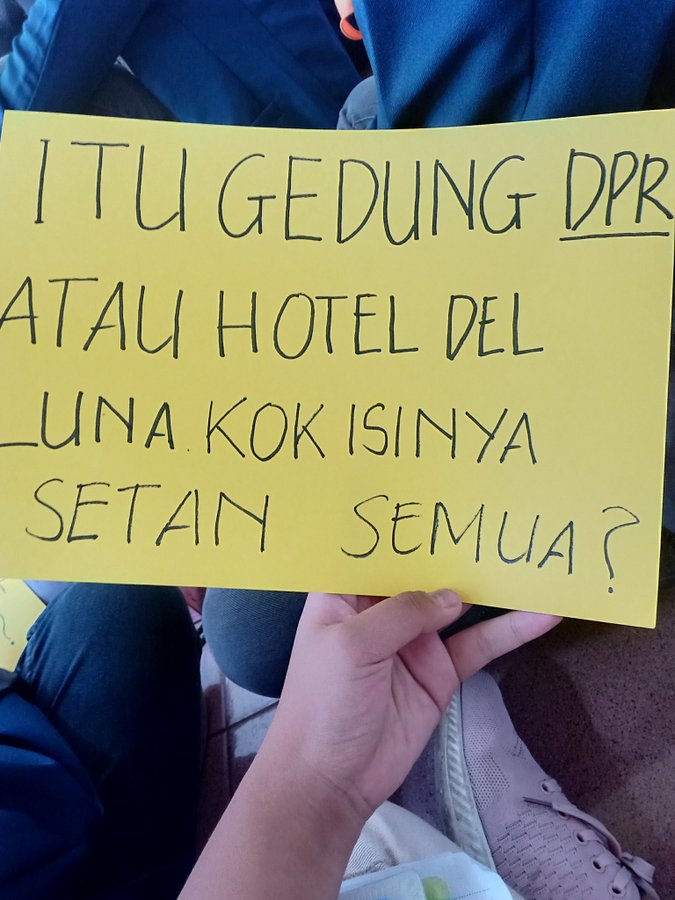 ITU GEDUNG DPR
ATAU HOTEL DEL
LUNA. KOK ISINYA
SETAN SEMUA?